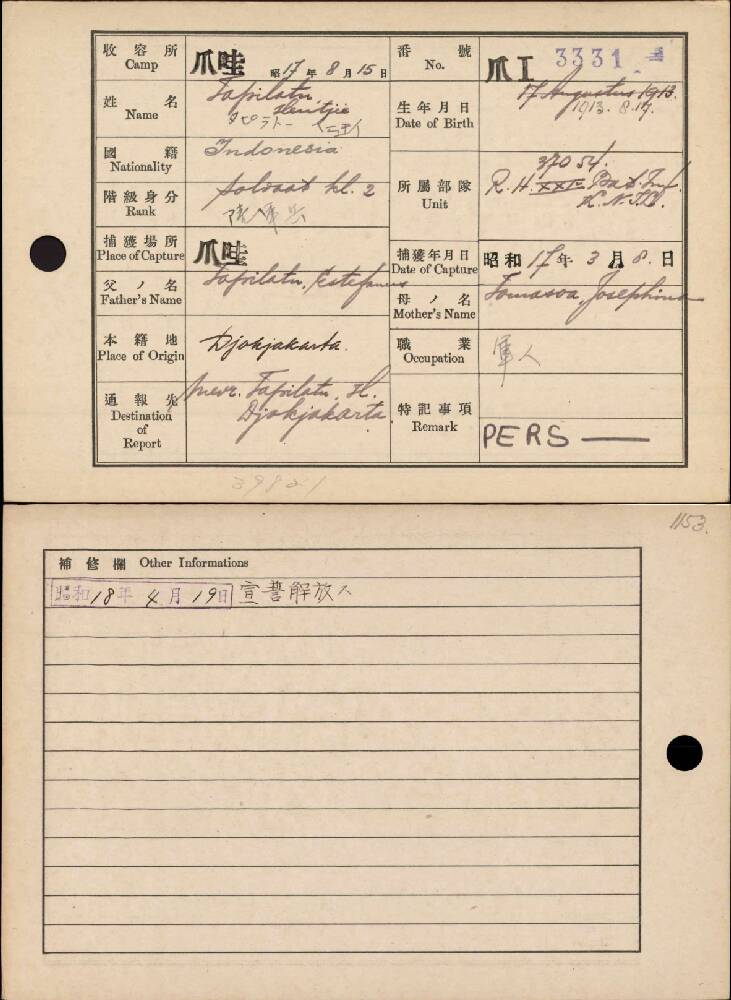 收容所 Camp 爪哇 昭17年8月15日
番號 No. 爪I 3331
姓名 Name Tapilatu Hentjie
タピラトー
生年月日 Date of Birth 17 Augustus 1913.
1913. 8. 17.
國籍 Nationality Indonesia
階級身分 Rank Soldaat kl. 2
陸軍兵
所屬部隊 Unit 37054.
R.H. XXIV Bat. Inf.
K.N.I.L.
捕獲場所 Place of Capture 爪哇
捕獲年月日 Date of Capture 昭和17年3月8日
父ノ名 Father's Name Tapilatu, Estefanus
母ノ名 Mother's Name Tomasoa, Josephina
本籍地 Place of Origin Djokjakarta.
職業 Occupation 軍人
通報先 Destination of Report Mevr. Tapilatu. H.
Djokjakarta.
特記事項 Remark PERS
1153.
補修欄 Other Informations
昭和18年4月19日宣誓解放ス